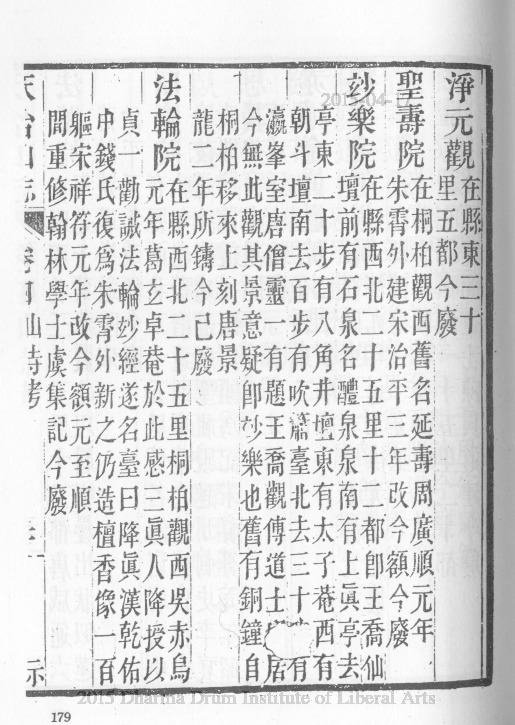 淨元觀 在縣東三十
里五都今廢
聖壽院 在桐柏觀西舊名延壽周廣順元年
朱霄外建宋治平三年改今額今廢
玅樂院 在縣西北二十五里十二都卽王喬仙
壇前有石泉名醴泉泉南有上眞亭去
亭東二十步有八角井壇東有太子菴西有
朝斗壇南去百步有吹簫臺北去三十有
瀛峯室唐僧靈一有題王喬觀傅道士居
今無此觀其景意疑卽玅樂也舊有銅鐘自
桐柏移來上刻唐景
龍二年所鑄今已廢
法輪院 在縣西北二十五里桐柏觀西吳赤烏
元年葛玄卓菴於此感三眞人降授以
貞一勸誡法輪玅經遂名臺曰降眞漢乾佑
中錢氏復爲朱霄外新之仍造檀香像一百
軀宋祥符元年改今額元至順
間重修翰林學士虞集記今廢
179
2015 Dharma Drum Institute of Liberal Arts